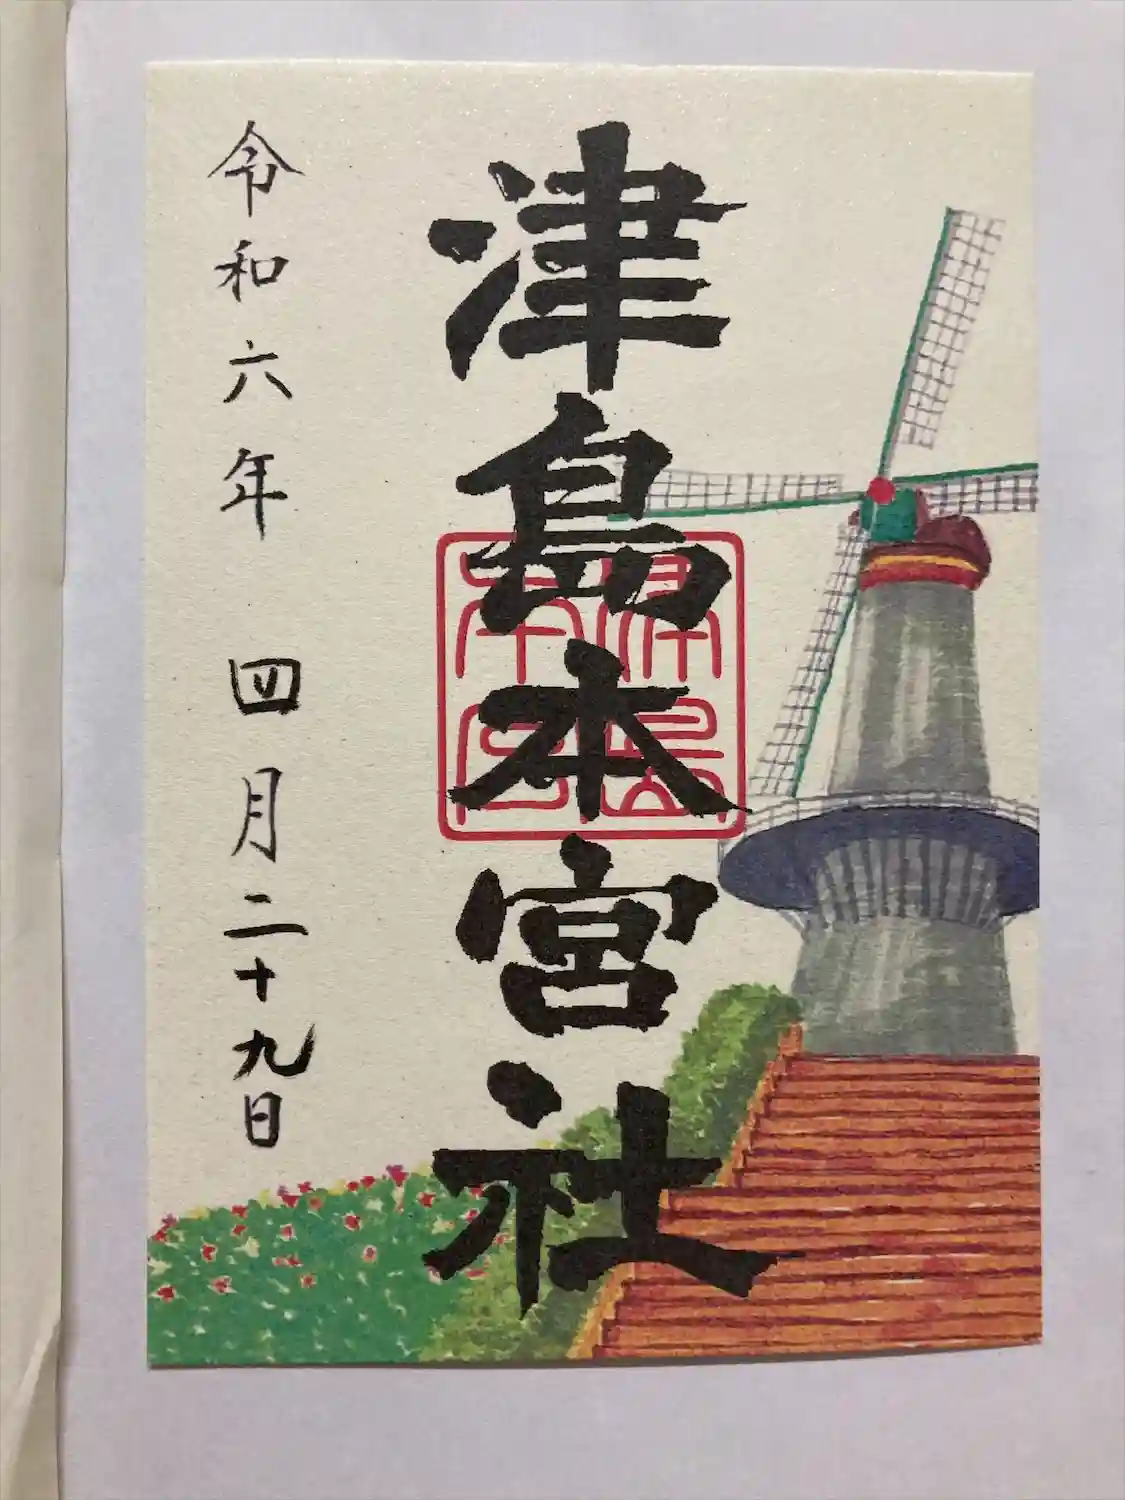 津島本宮社
津島本宮
令和六年 四月二十九日